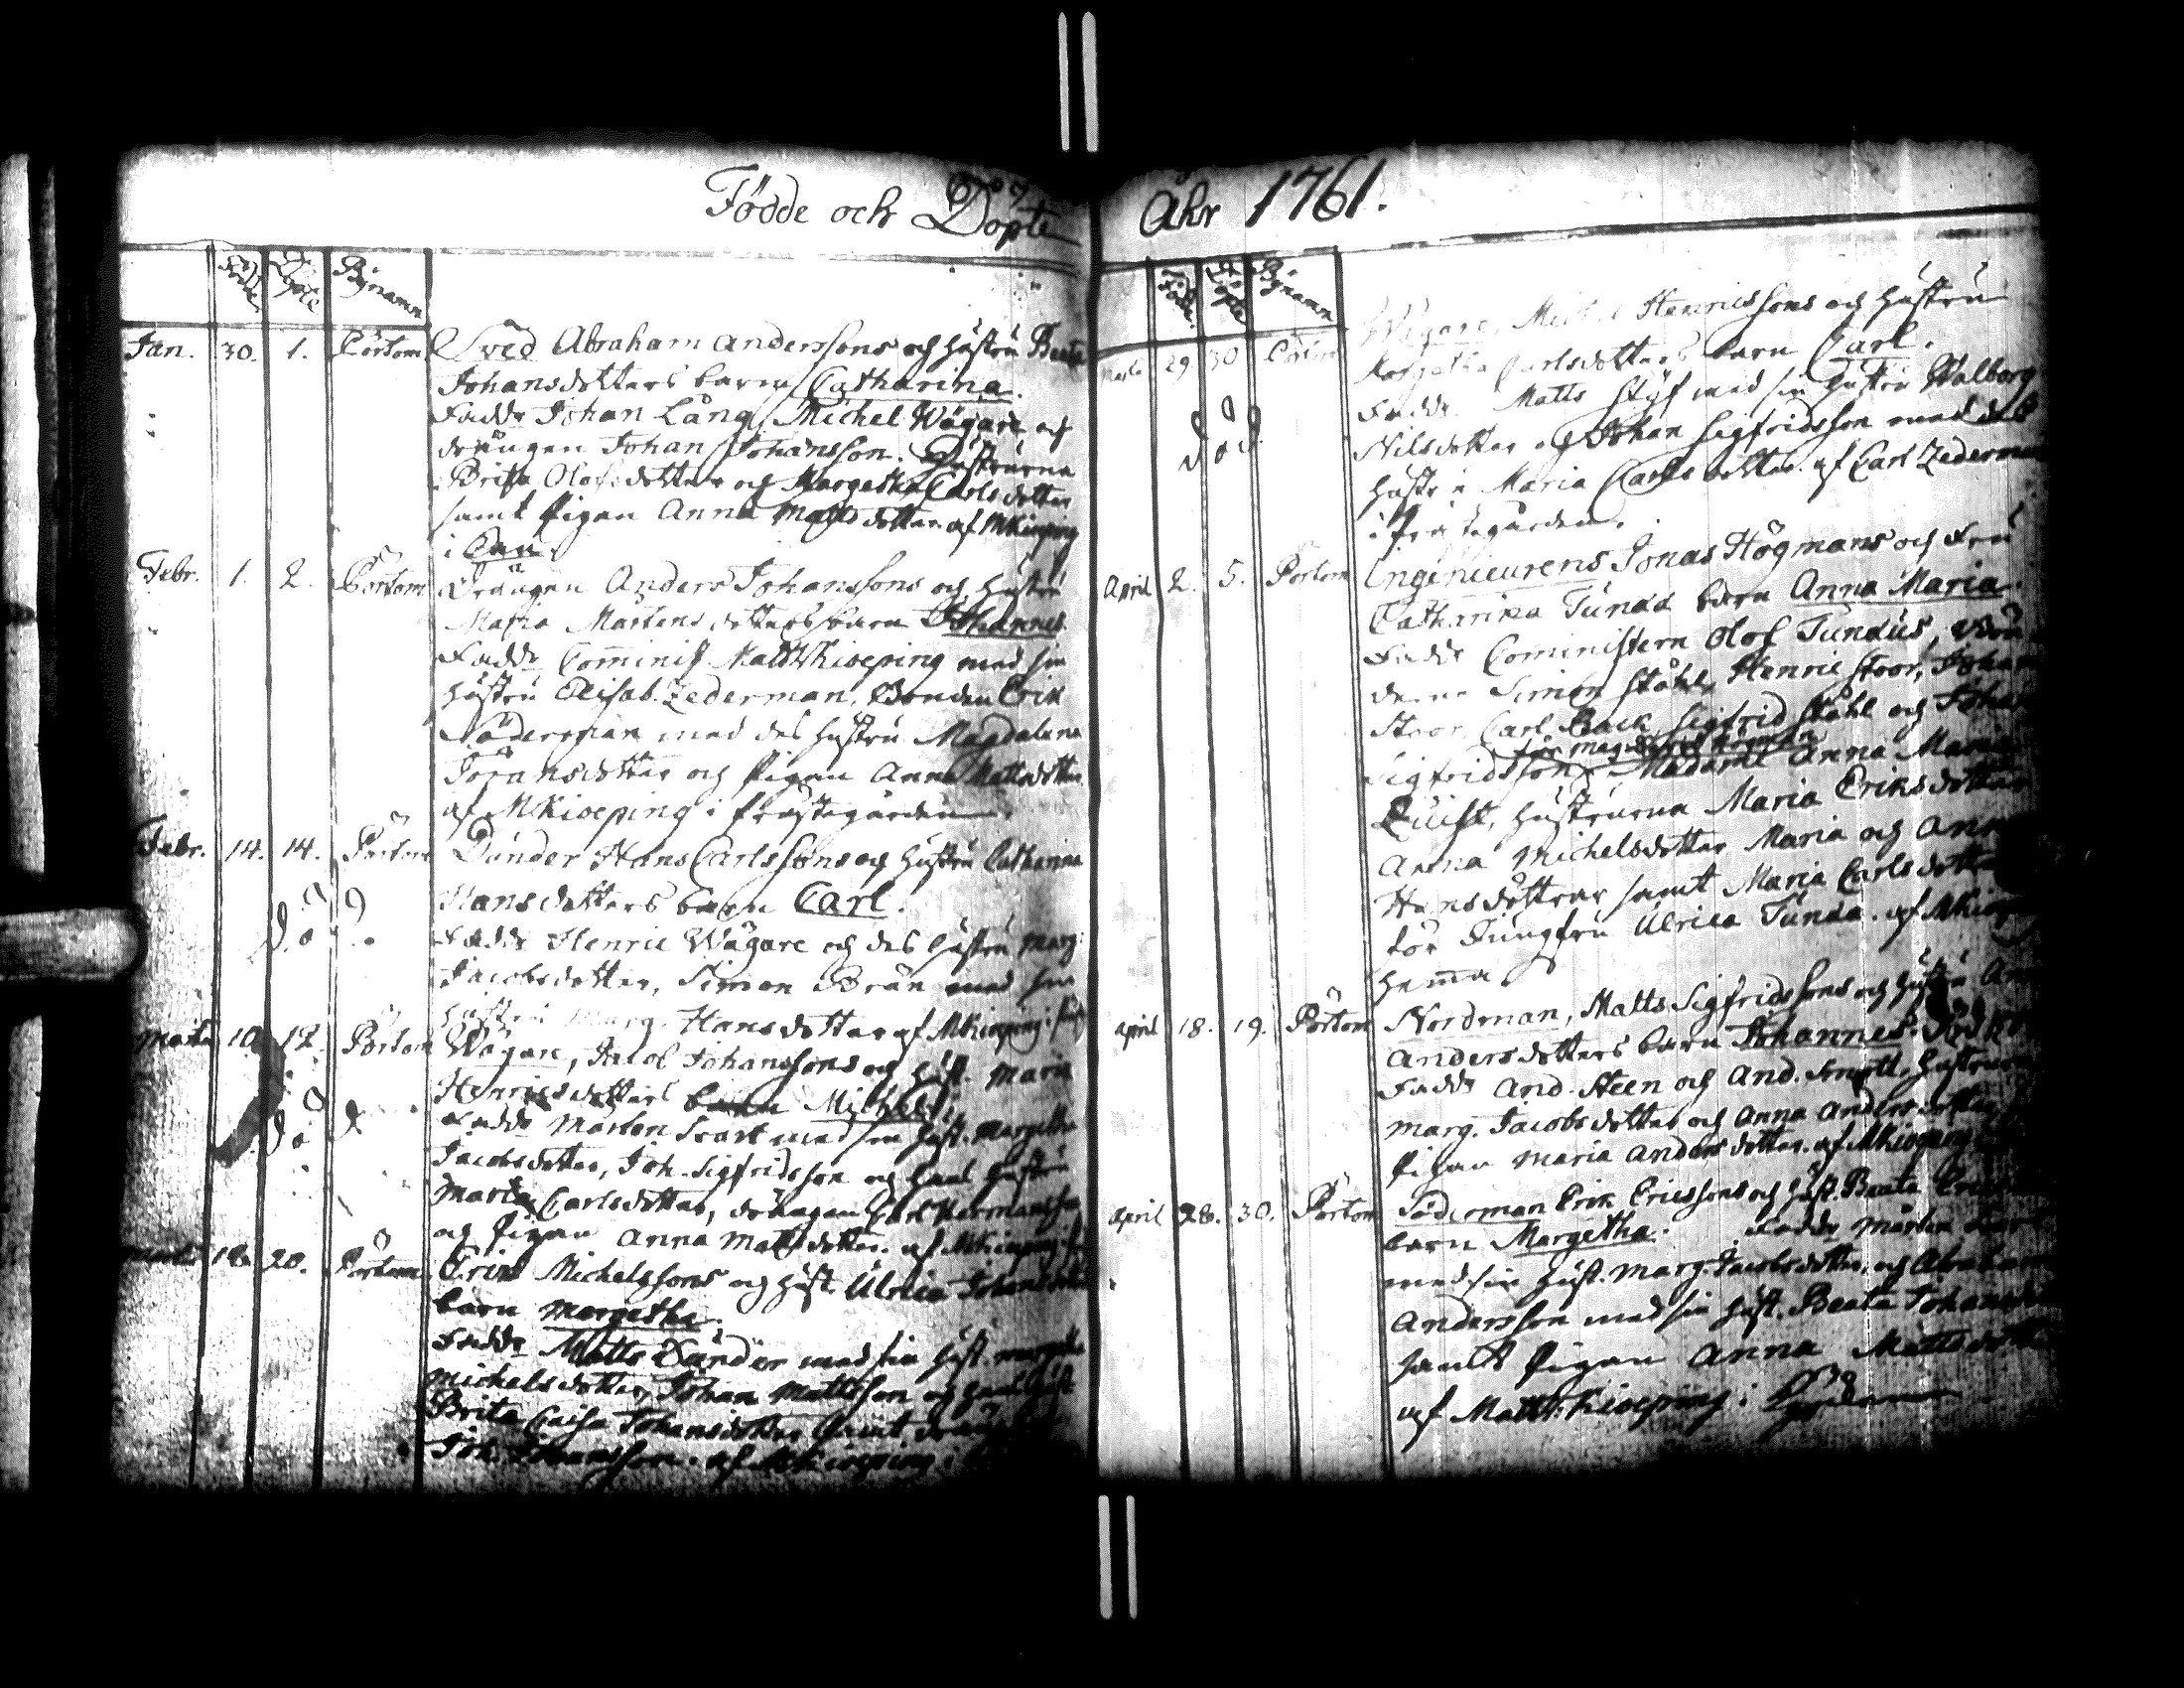 Födde och Döpte
Födde Döpte Bynamn
Jan. 30. 1. Pörtom Sved Abraham Anderssons och hustru Beata
Johansdotters barn Catharina.
Fadd: Johan Lång, Michel Wägare och
drängen Johan Johansson. Hustrurna
Brita Olofsdotter och Margetha Carlsdotter
samt Pigan Anna Mattsdotter af MKioeping
i
Febr. 1. 2. Pörtom Drängen Anders Johanssons och hustru
Maria Mårtensdotters barn Johannes.
Fadd: Cominist. Matth Kioeping med sin
hustru Elisab. Zederman, Bonden Erik
Söderman med des hustru Magdalena
Jöransdotter och Pigan Anna Mattsdotter
af MKioeping i Prästegården.
Febr. 14. 14. Pörtom Dunder Hans Carlssons och hustru Catharina
Hansdotters barn Carl.
död
Fadd: Henric Wägare och des hustru Marg:
Jacobsdotter, Simon Brän med sin
hustru Marg. Hansdotter af MKioeping i
Martii 10. 12. Pörtom Wägare, Jacob Johanssons och hust. Maria
Henricsdotters barn Michel.
död
Fadd: Mårten Svart med sin hust. Margetha
Jacobsdotter, Joh. Sigfridsson och hans hustru
Maria Carlsdotter, drängen Carl Hermansson
och Pigan Anna Mattsdotter. af MKioeping
Martii 18. 20. Pörtom. Eric Michelssons och hust. Ulrica Johansdotters
barn Margetha.
Fadd: Matts Dunder med sin hust. Margetha
Michelsdotter, Johan Mattsson och hans hust.
Brita Caisa Johansdotter samt
Joh. Johansson. af MKioeping i
Åhr 1761.
Födde. Döpte Bynamn
Martii 29 30 Pörtom Wägare, Michel Henricssons och hustru
Margetha Carlsdotters barn Carl.
död
Fadd: Matts Styf med sin hustru Walborg
Nilsdotter och Johan Sigfridsson med des
hustru Maria Carlsdotter. af Carl Zederman
i Prästegården.
April 2. 5. Pörtom Ingenieurens Jonas Högmans och Fru
Catharina Tunda barn Anna Maria.
Fadd: Cominstern Olof Tundus,
Simon Ståhl, Henric Stoor, Johan
Stoor, Carl Back, Sigfrid Ståhl och Johan
Sigfridsson, Madame Anna Maria
Quist, hustrurna Maria Eriksdotter
Anna Michelsdotter Maria och Anna
Hansdöttrar samt Maria Carlsdotter
för Jungfru Ulrica Tunda. af MKioeping
hemma
April 18. 19. Pörtom Nordman, Matts Sigfridssons och hustru
Andersdotters barn Johannes.
Fadd: And. Steen och And. hustrurna
Marg. Jacobsdotter och Anna Andersdotter
Pigan Maria Andersdotter. af MKioeping
April 28. 30. Pörtom Söderman Erik Ericssons och hust. Beata
barn Margetha. Fadd: Mårten
med sin hust. Marg. Jacobsdotter, och Abraham
Andersson med sin hust. Beata Johansdotter
samt Pigan Anna Mattsdotter
af Matth: Kioeping i